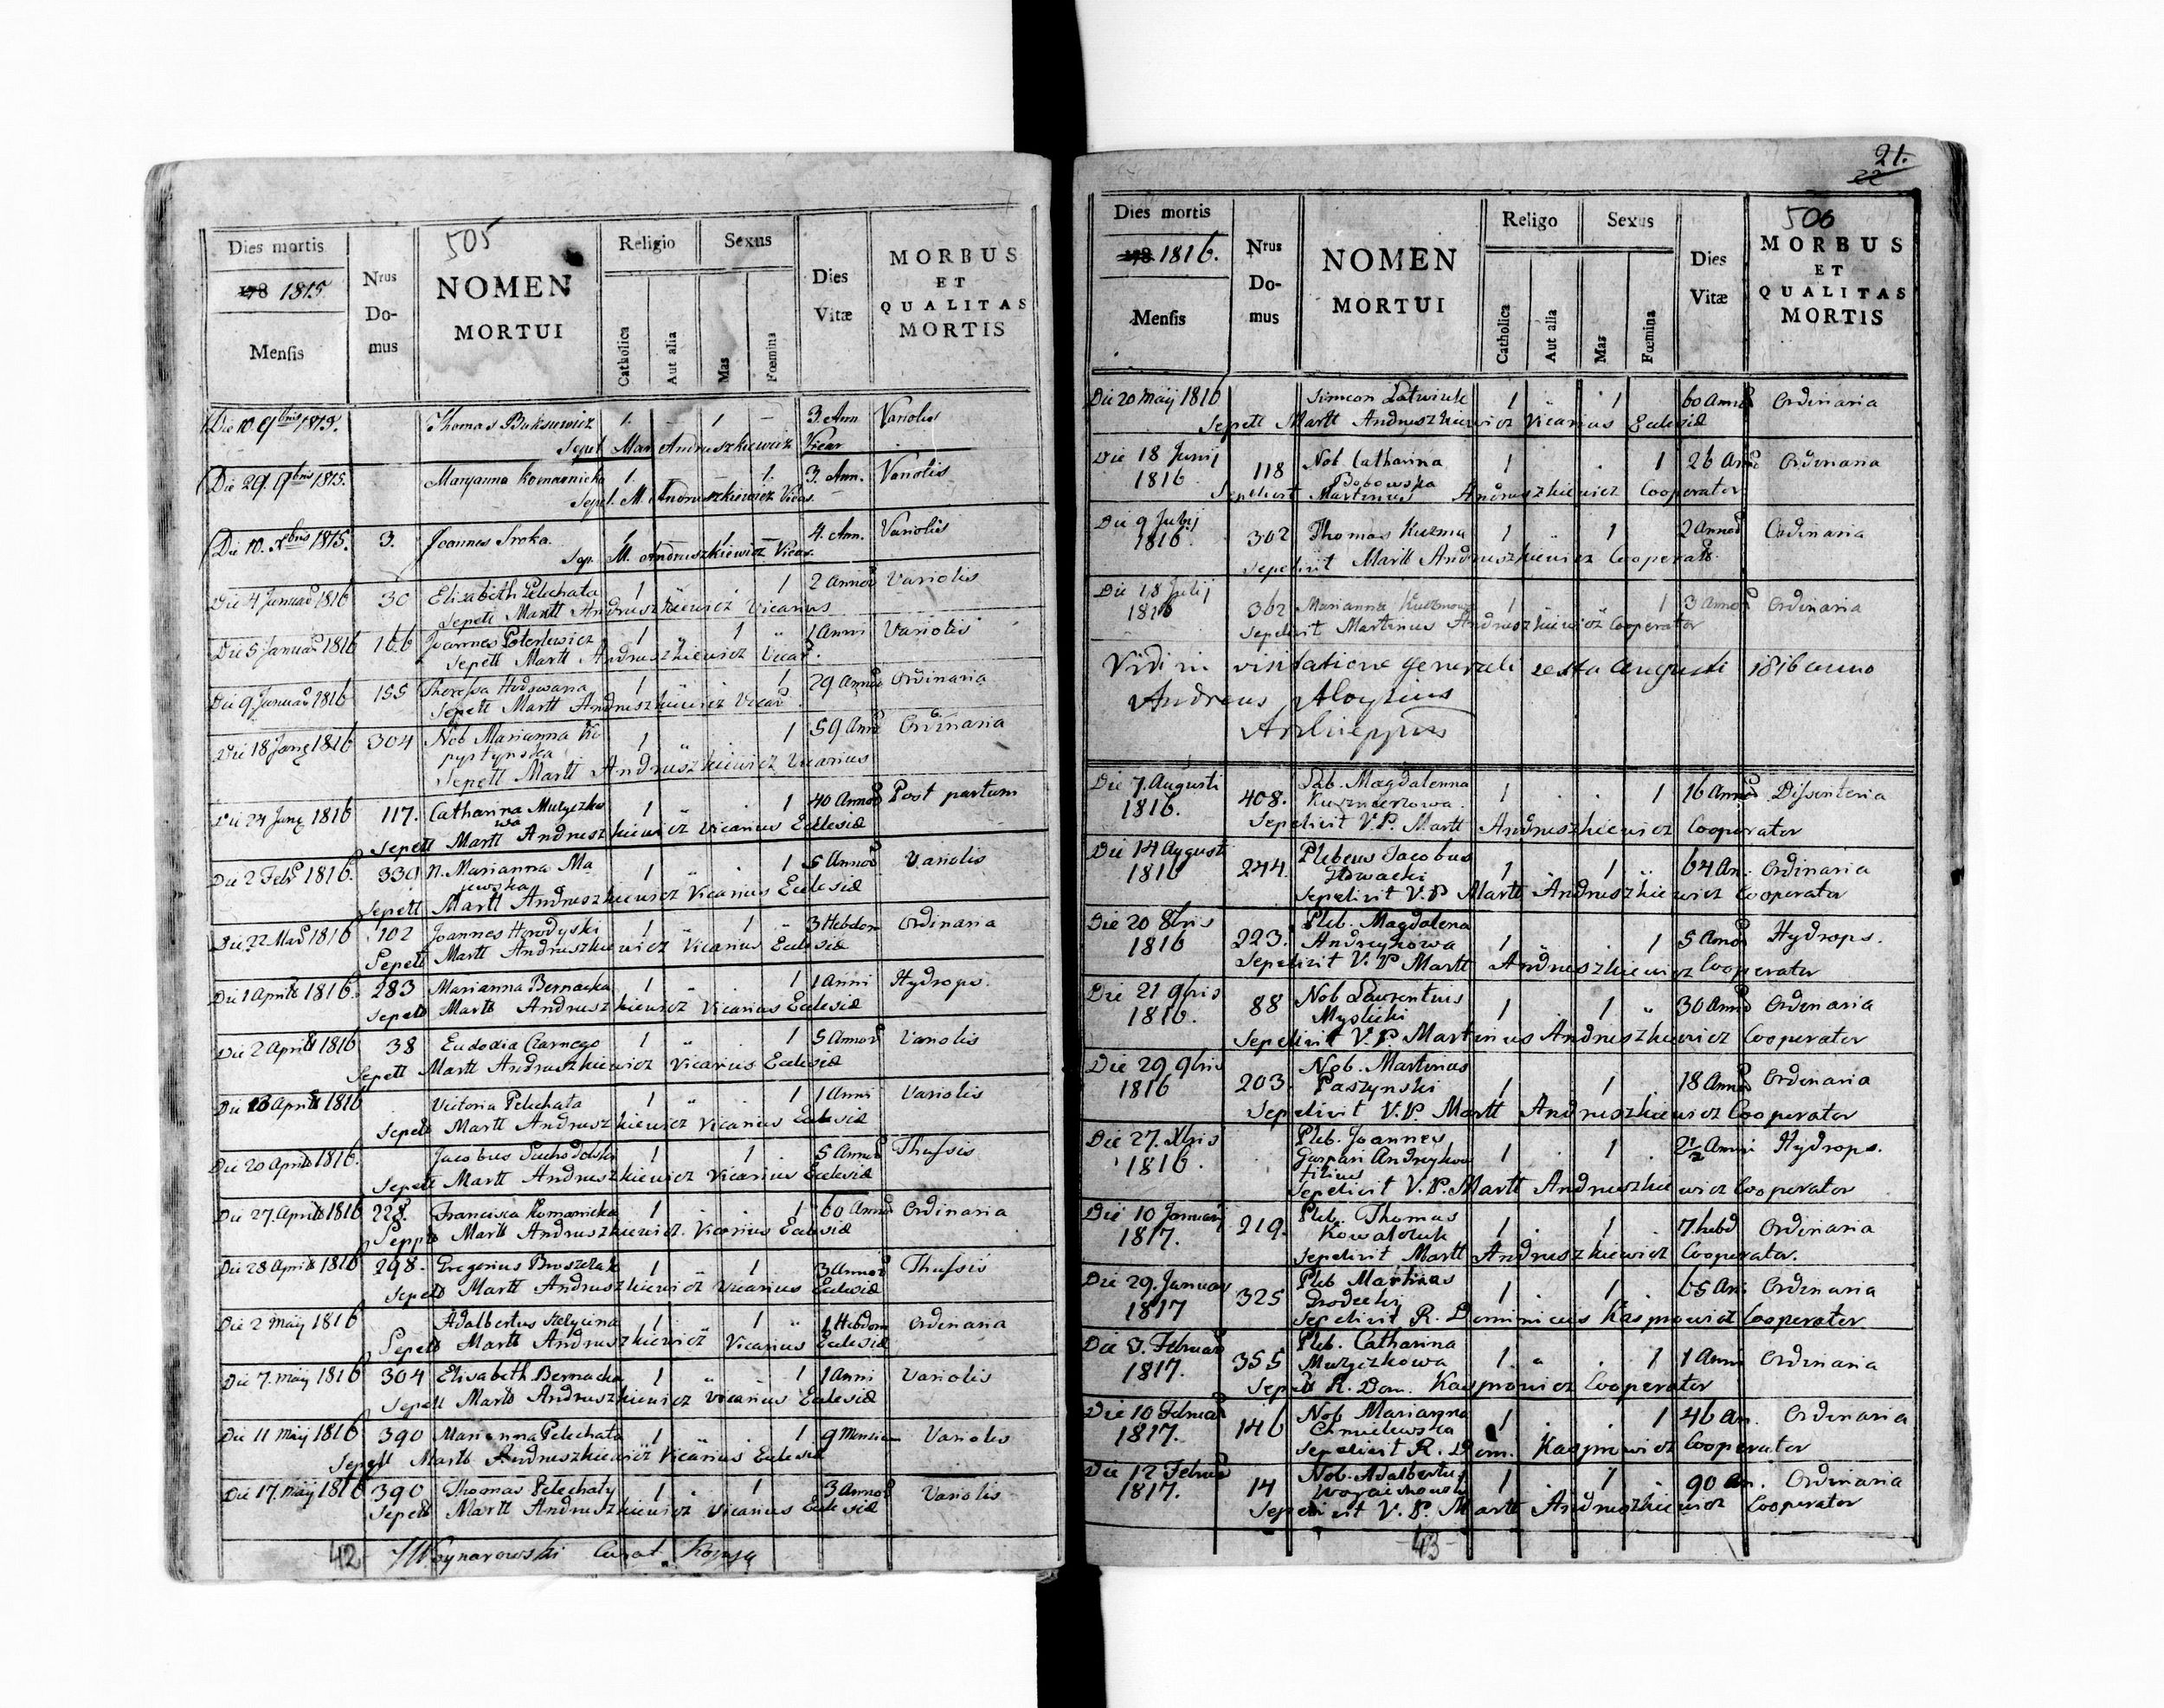 505
Dies mortis
178 1815.
Mensis
Nrus Do- mus
NOMEN MORTUI
Religio
Catholica
Aut alia
Sexus
Mas
Fœmina
Dies Vitæ
MORBUS ET QUALITAS MORTIS
Die 10. 9bris 1815. Thomas Buksiewicz 1. 1 3. Ann Variolis
Sepel. Mar Andruszkiewicz Vicar
Die 29. 9bris 1815. Maryanna Komarnicka 1. 1. 3. Ann. Variolis
Sepel. M. Andruszkiewicz Vicar.
Die 10. Xbris 1815. 3. Joannes Sroka 1. 1 4. Ann. Variolis
Sep. M. Andruszkiewicz Vicar.
Die 4 Januar 1816 30 Elizabeth Pelechata 1 " 1 2 Annor Variolis
Sepelt Martt Andruszkiewicz Vicarius
Die 5 Januar 1816 166 Joannes 1 " 1 " 1 Anni Variolis
Sepelt Martt Andruszkiewicz Vicar.
Die 9 Januar 1816 155 Theressa 1 1 29 Annor Ordinaria
Sepelt Martt Andruszkiewicz Vicar
Die 18 Jany 1816 304 Nob Marianna Ko
pystynska 1 " 1 59 Ann Ordinaria
Sepelt Martt Andruszkiewicz Vicarius
Die 24 Jany 1816 117. Catharina Muzyczko
wa 1 " 1 40 Annor Post partum
Sepelt Martt Andruszkiewicz Vicarius Eclesiæ
Die 2 Febr 1816. 339 N. Marianna Ma
jewska 1 " 1 5 Annor Variolis
Sepelt Martt Andruszkiewicz Vicarius Eclesiæ
Die 22 Mar 1816 102 Joannes Horodyski 1 " 1 " 3 Hebdom Ordinaria
Sepelt Martt Andruszkiewicz Vicarius Eclesiæ
Die 1 Aprils 1816. 283 Marianna Bernacka 1 " 1 1 Anni Hydrops.
Sepelt Martt Andruszkiewicz Vicarius Eclesiæ
Die 2 Aprils 1816 38 Eudoxia Czarnego 1 " 1 5 Annor Variolis
Sepelt Martt Andruszkiewicz Vicarius Eclesiæ
Die Aprils 1816 Victoria Pelechata 1 " 1 1 Anni Variolis
Sepelt Martt Andruszkiewicz Vicarius Eclesiæ
Die 20 Aprils 1816. Jacobus Suchodolski 1 1 5 Annor Thussis
Sepelt Martt Andruszkiewicz Vicarius Eclesiæ
Die 27. Aprils 1816 228. Francisca Komarnicka 1 1 60 Annor Ordinaria
Seppelt Martt Andruszkiewicz Vicarius Eclesiæ
Die 28 Aprils 1816 298. Gregorius 1 " 1 3 Annor Thussis
Sepelt Martt Andruszkiewicz Vicarius Eclesiæ
Die 2 Maij 1816 Adalbertus 1 1 " 1 Hebdom Ordinaria
Sepelt Martt Andruszkiewicz Vicarius Eclesiæ
Die 7. Maij 1816 304 Elisabeth Bernacka 1 " 1 1 Anni Variolis
Sepelt Martt Andruszkiewicz Vicarius Eclesiæ
Die 11 Maij 1816 390 Marianna Pelechata 1 " 1 9 Mensium Variolis
Sepelt Martt Andruszkiewicz Vicarius Eclesiæ
Die 17. Maij 1816 390 Thomas Pelechaty 1 1 3 Annor Variolis
Sepelt Martt Andruszkiewicz Vicarius Eclesiæ
42 Curat.
21.
22
506
Dies mortis
178 1816.
Mensis
Nrus Do- mus
NOMEN MORTUI
Religo
Catholica
Aut alia
Sexus
Mas
Fœmina
Dies Vitæ
MORBUS ET QUALITAS MORTIS
Die 20 Maij 1816 Simeon 1 " 1 60 Annor Ordinaria
Sepelt Martt Andruszkiewicz Vicarius Eclesiæ
Die 18 Junij
1816 118 Nob. Catharina
Bobowska 1 . 1 26 Ann Ordinaria
Sepelivit Martinus Andruszkiewicz Cooperator
Die 9 Julij
1816 302 Thomas Kuzma 1 " 1 2 Annor Ordinaria
Sepelivit Martt Andruszkiewicz Cooperator
Die 18 Julij
1816 302 Marianna 1 1 3 Annor Ordinaria
Sepelivit Martinus Andruszkiewicz Cooperator
Vidi in visitatione generali sexta Augusti 1816 anno
Andreas Aloysius
Archieppus
Die 7. Augusti
1816. 408. Lab. Magdalenna
1 . . 1 16 Annor Dissenteria
Sepelivit V.P. Martt Andruszkiewicz Cooperator
Die 14 Augusti
1816 244. Plebeus Jacobus
Głowacki 1 1 " 64 An. Ordinaria
Sepelivit V.P Martt Andruszkiewicz Cooperator
Die 20 8bris
1816 223. Pleb. Magdalena
Andreykowa 1 " . 1 5 Annor Hydrops.
Sepelivit V.P Martt Andruszkiewicz Cooperator
Die 21 9bris
1816. 88 Nob Laurentius
Myslicki 1 1 " 30 Annor Ordinaria
Sepelivit V.P. Martinus Andruszkiewicz Cooperator
Die 29 9bris
1816 203. Nob. Martinus
Paszynski 1 1 . 18 Annor Ordinaria
Sepelivit V.P. Martt Andruszkiewicz Cooperator
Die 27. Xbris
1816. Pleb. Joannes
Gaspari Andreykow
filius 1 . 1 . 2 1/2 Anni Hydrops.
Sepelivit V.P. Martt Andruszkiewicz Cooperator
Die 10 Januarij
1817. 219. Pleb. Thomas
Kowalczuk 1 . 1 . 7 hebd Ordinaria
Sepelivit Martt Andruszkiewicz Cooperator.
Die 29. Januar
1817 325 Pleb Martinus
Grodecki 1 . 1 . 65 An. Ordinaria
Sepelivit R. Dominicus Kasprowicz Cooperator
Die 3. Februar
1817. 355 Pleb. Catharina
Muzyczkowa 1. " . 1 1 Anni Ordinaria
Sepelt R. Dom. Kasprowicz Cooperator
Die 10 Februar
1817. 146 Nob Marianna
Chmielewska 1 . . 1 46 An. Ordinaria
Sepelivit R. Dom. Kasprowicz Cooperator
Die 12 Februar
1817. 14 Nob. Adalbertus
1 . 1 . 90 An. Ordinaria
Sepelivit V.P. Martt Andruszkiewicz Cooperator
43